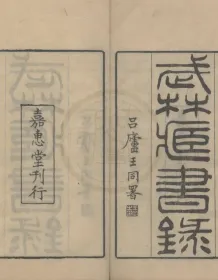 武林藏書錄
呂廬王同署
嘉惠堂刊行